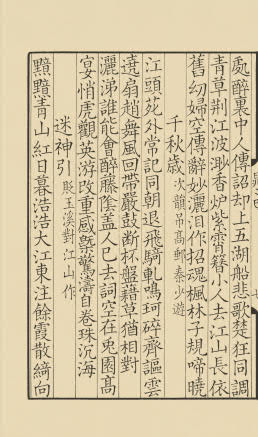 處醉裏中人傳詔却上五湖船悲歌楚狂同調
青草荆江波渺香炉紫霄簪小人去江山長依
舊幼婦空傳辭妙灑泪作招魂楓林子規啼曉
千秋歲 次韻弔高郵秦少遊
江頭苑外常記同朝退飛騎軋鳴珂碎齊謳雲
遶扇趙舞風回帶嚴鼓斷杯盤藉草猶相對
灑涕誰能會醉藤蔭蓋人已去詞空在兔園高
宴悄虎觀英游改重感槩驚濤自卷珠沉海
迷神引 貶玉溪對江山作
黯黯青山紅日暮浩浩大江東注餘霞散綺向